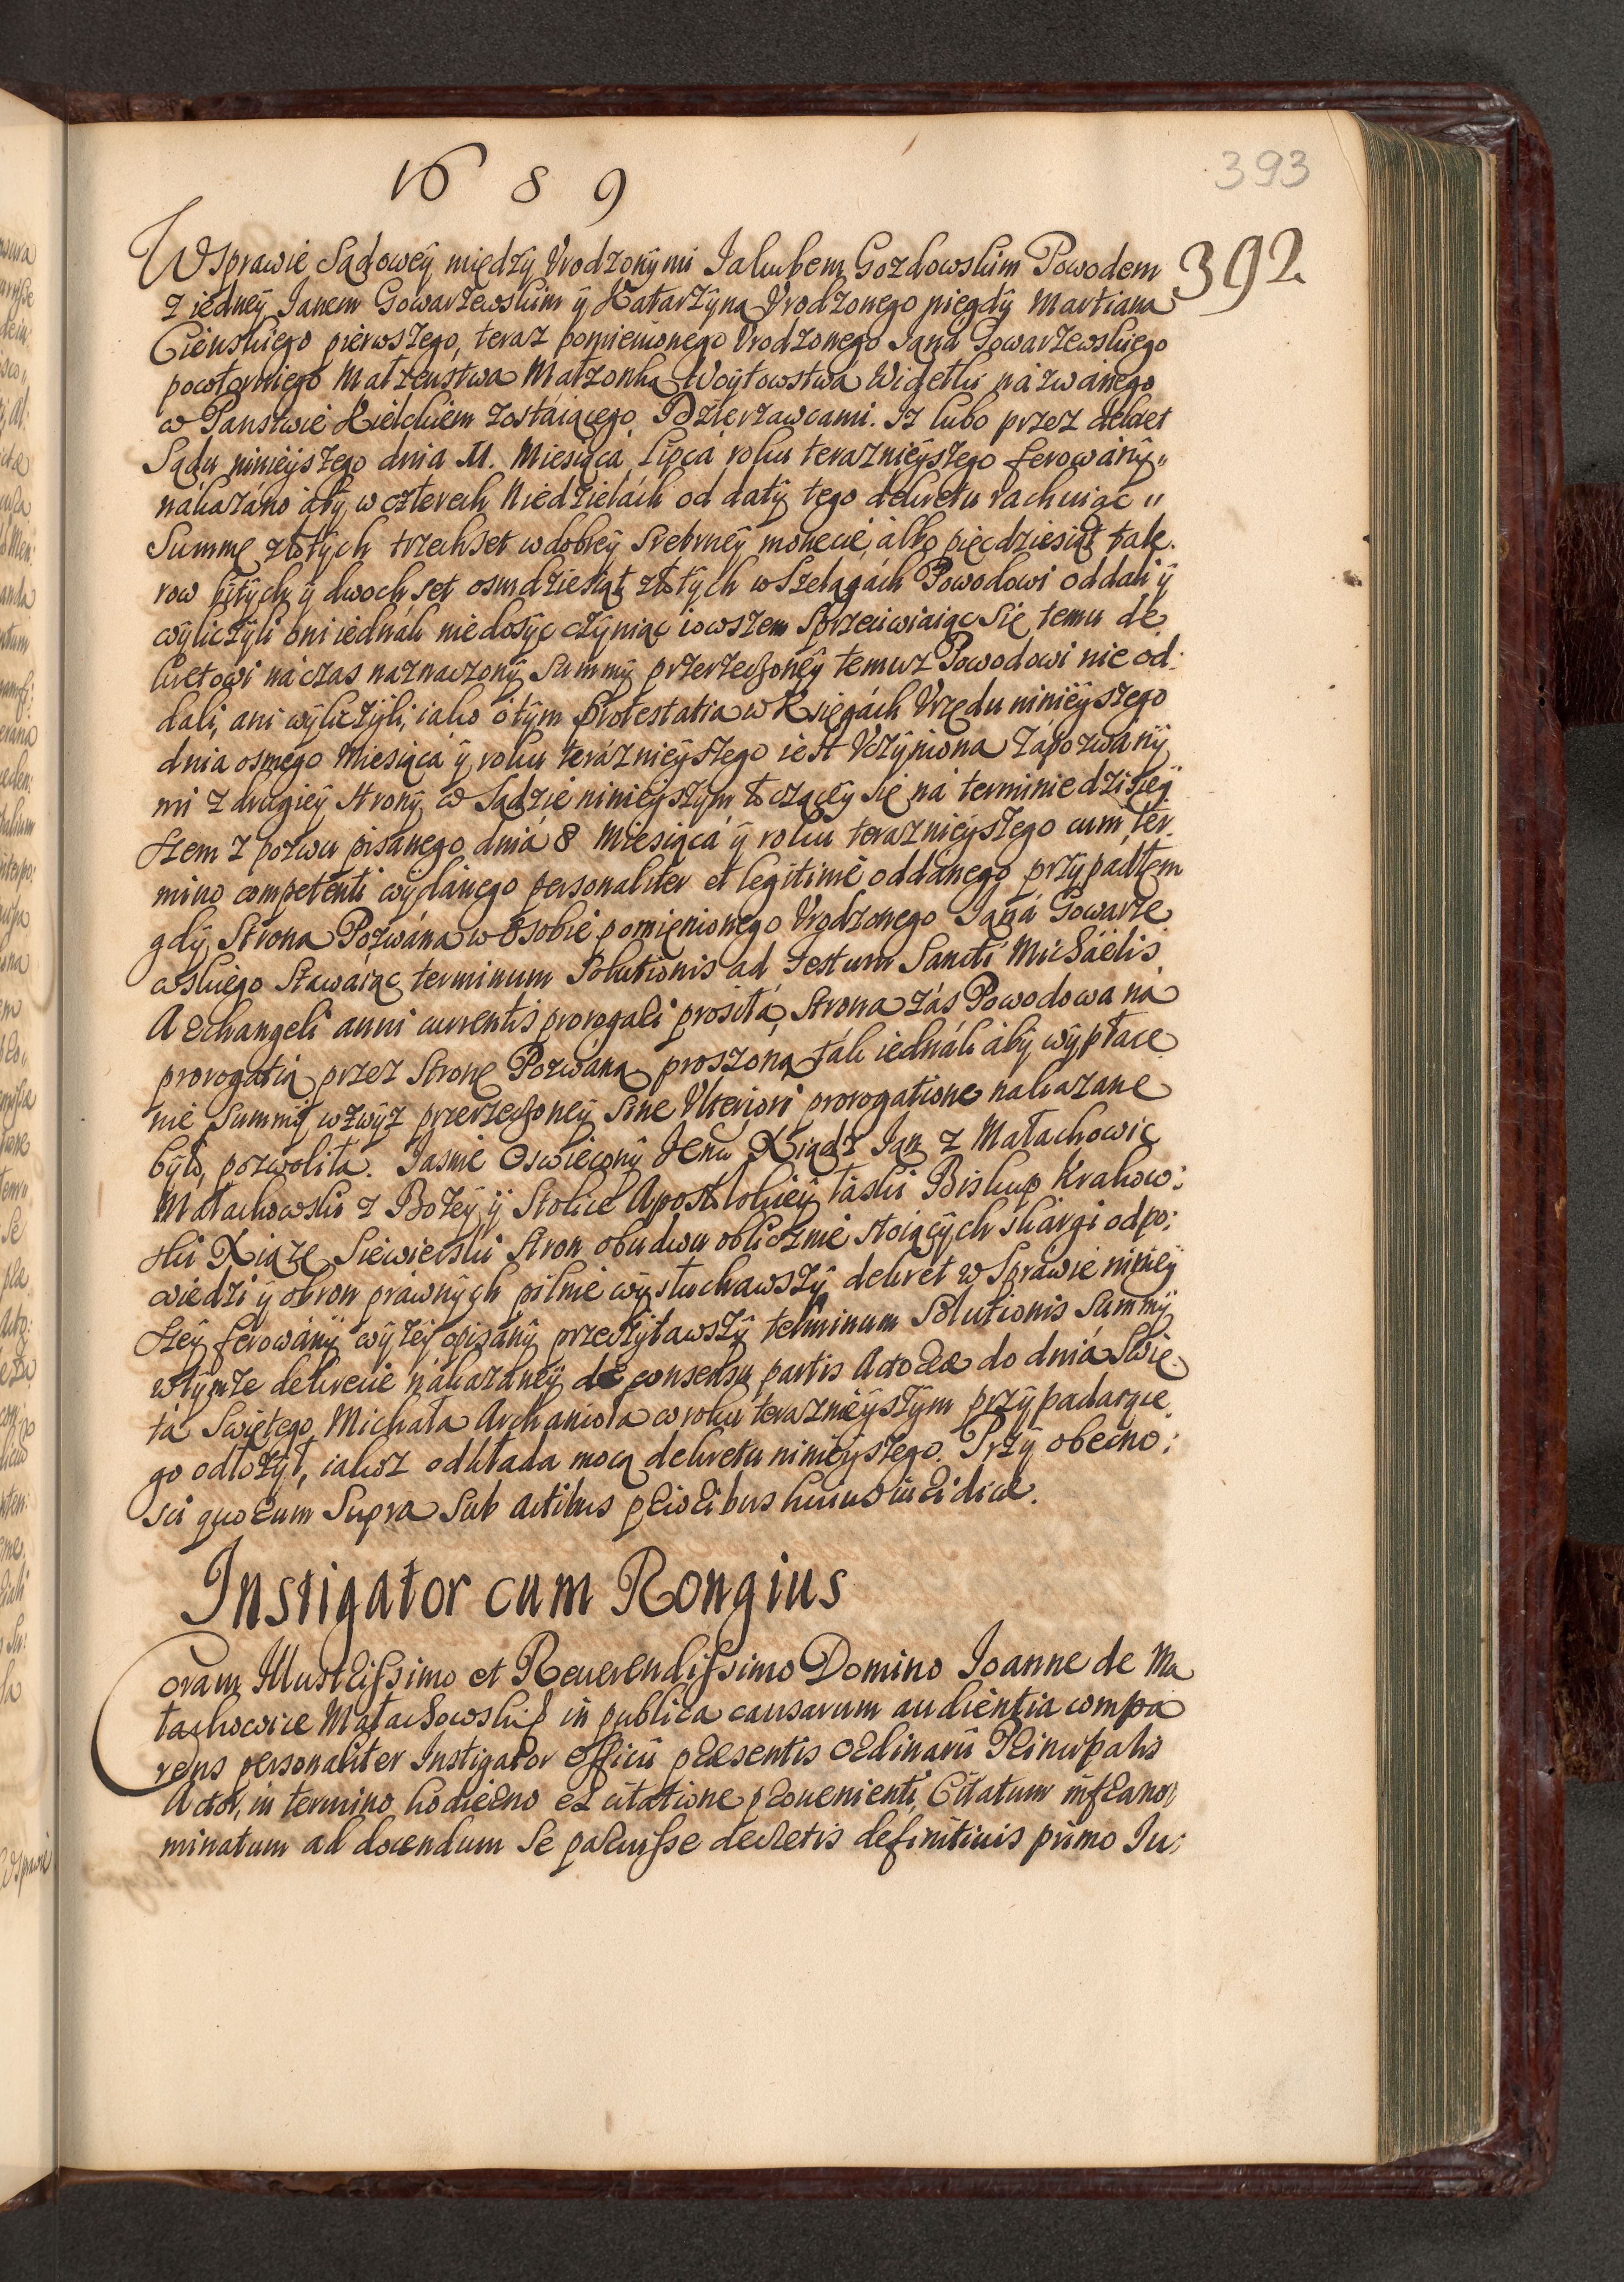 1689
393
392
W Sprawie Sądoweÿ międzÿ Vrodzonÿmi Jakubem Gozdowskim Powodem
z iedneÿ Janem Gowarzewskim ÿ Katarzÿną Vrodzonego niegdÿ Martiana
Cienskiego pierwszego, teraz pomienionego Vrodzonego Jana Gowarzewskiego
powtorniego Małżenstwa Małzonką Woÿtowstwa Widełki názwánego
w Panstwie Kielckiem zostáiącego Dzierzawcami. Iz lubo przez dekret
Sądu ninieÿszego dnia 11. Miesiącá Lipcá roku teraznieÿszego ferowánÿ
nákazáno áby w czterech Niedzielách od datÿ tego dekretu rachuiąc
Summę złotÿch trzechset w dobreÿ Srebrneÿ monecie, álbo pięcdziesiąt tale
row bitÿch ÿ dwochset osmdziesiąt złotÿch w Szelągách Powodowi oddali ÿ
wÿliczÿli oni iednák nie dosÿc czÿniąc iowszem Sprzeciwiaiąc Się temu de
kretowi ná czas náznaczonÿ Summÿ przerzeczoneÿ temusz Powodowi nie od:
dali, ani wÿliczÿli, iako o tÿm protestatia w Księgách Vrzędu ninieÿszego
dnia osmego Miesiącá ÿ roku teráznieÿszego iest Vczÿniona Zápozwánÿ
mi z drugieÿ stronÿ w Sądzie ninieÿszÿm toczącеÿ się ná terminie dzisieÿ
szem z pozwu pisánego dniá 8 Miesiącá ÿ roku teraznieÿszego cum ter
mino competenti wÿdánego personaliter et legitimè oddánego przÿpadłem
gdÿ Strona Pozwána w Osobie pomięnionego Vrodzonego Janá Gowarze
wskiego Stawáiąc terminum Solutionis ad Festum Sancti Michaëlis
Archangeli anni currentis prorogari prosiłá, Strona zás Powodowa ná
prorogatią przez Stronę Pozwáną proszoną ták iednák ábÿ wÿpłace
nie Summÿ wzwÿz przerzeczoneÿ sine Vlteriori prorogatione nakazane
bÿło, pozwoliłá. Jasnie Oswieconÿ Jeo Xiądz Jan z Małachowic
Małachowski z Bożeÿ ÿ Stolice Apostolskieÿ łáski Biskup Krakow:
ski Xiąże Siewierski Stron obudwu oblicznie stoiącÿch skárgi odpo:
wiedzi ÿ obron práwnÿch pilnie wÿsłuchawszÿ, dekret w Spráwie niniеÿ
szeÿ ferowánÿ wÿżeÿ opisánÿ przeczÿtawszÿ terminum Solutionis Summÿ
w tÿmże dekrecie nákazáneÿ de consensu partis Actoreæ do dniá Swię
tá Swiętego Michałá Archaniołá w roku teraznieÿszÿm przÿpadaiące
go odłożÿł, iakosz odkłada mocą dekretu ninieÿszego. Przÿ obecno:
sci quorum Supra Sub actibus prioribus huius iuridicæ.
Instigator cum Rongius
Coram Illustrissimo et Reuerendissimo Domino Ioanne de Ma
łachowice Małachowski in publica causarum audientia compa
rens personaliter Instigator Officÿ præsentis ordinarÿ Principalis
Actor, in termino hodierno ex citatione proueniente, Citatum infrano
minatum ad docendum Se paruisse decretis definitiuis primo Iu: